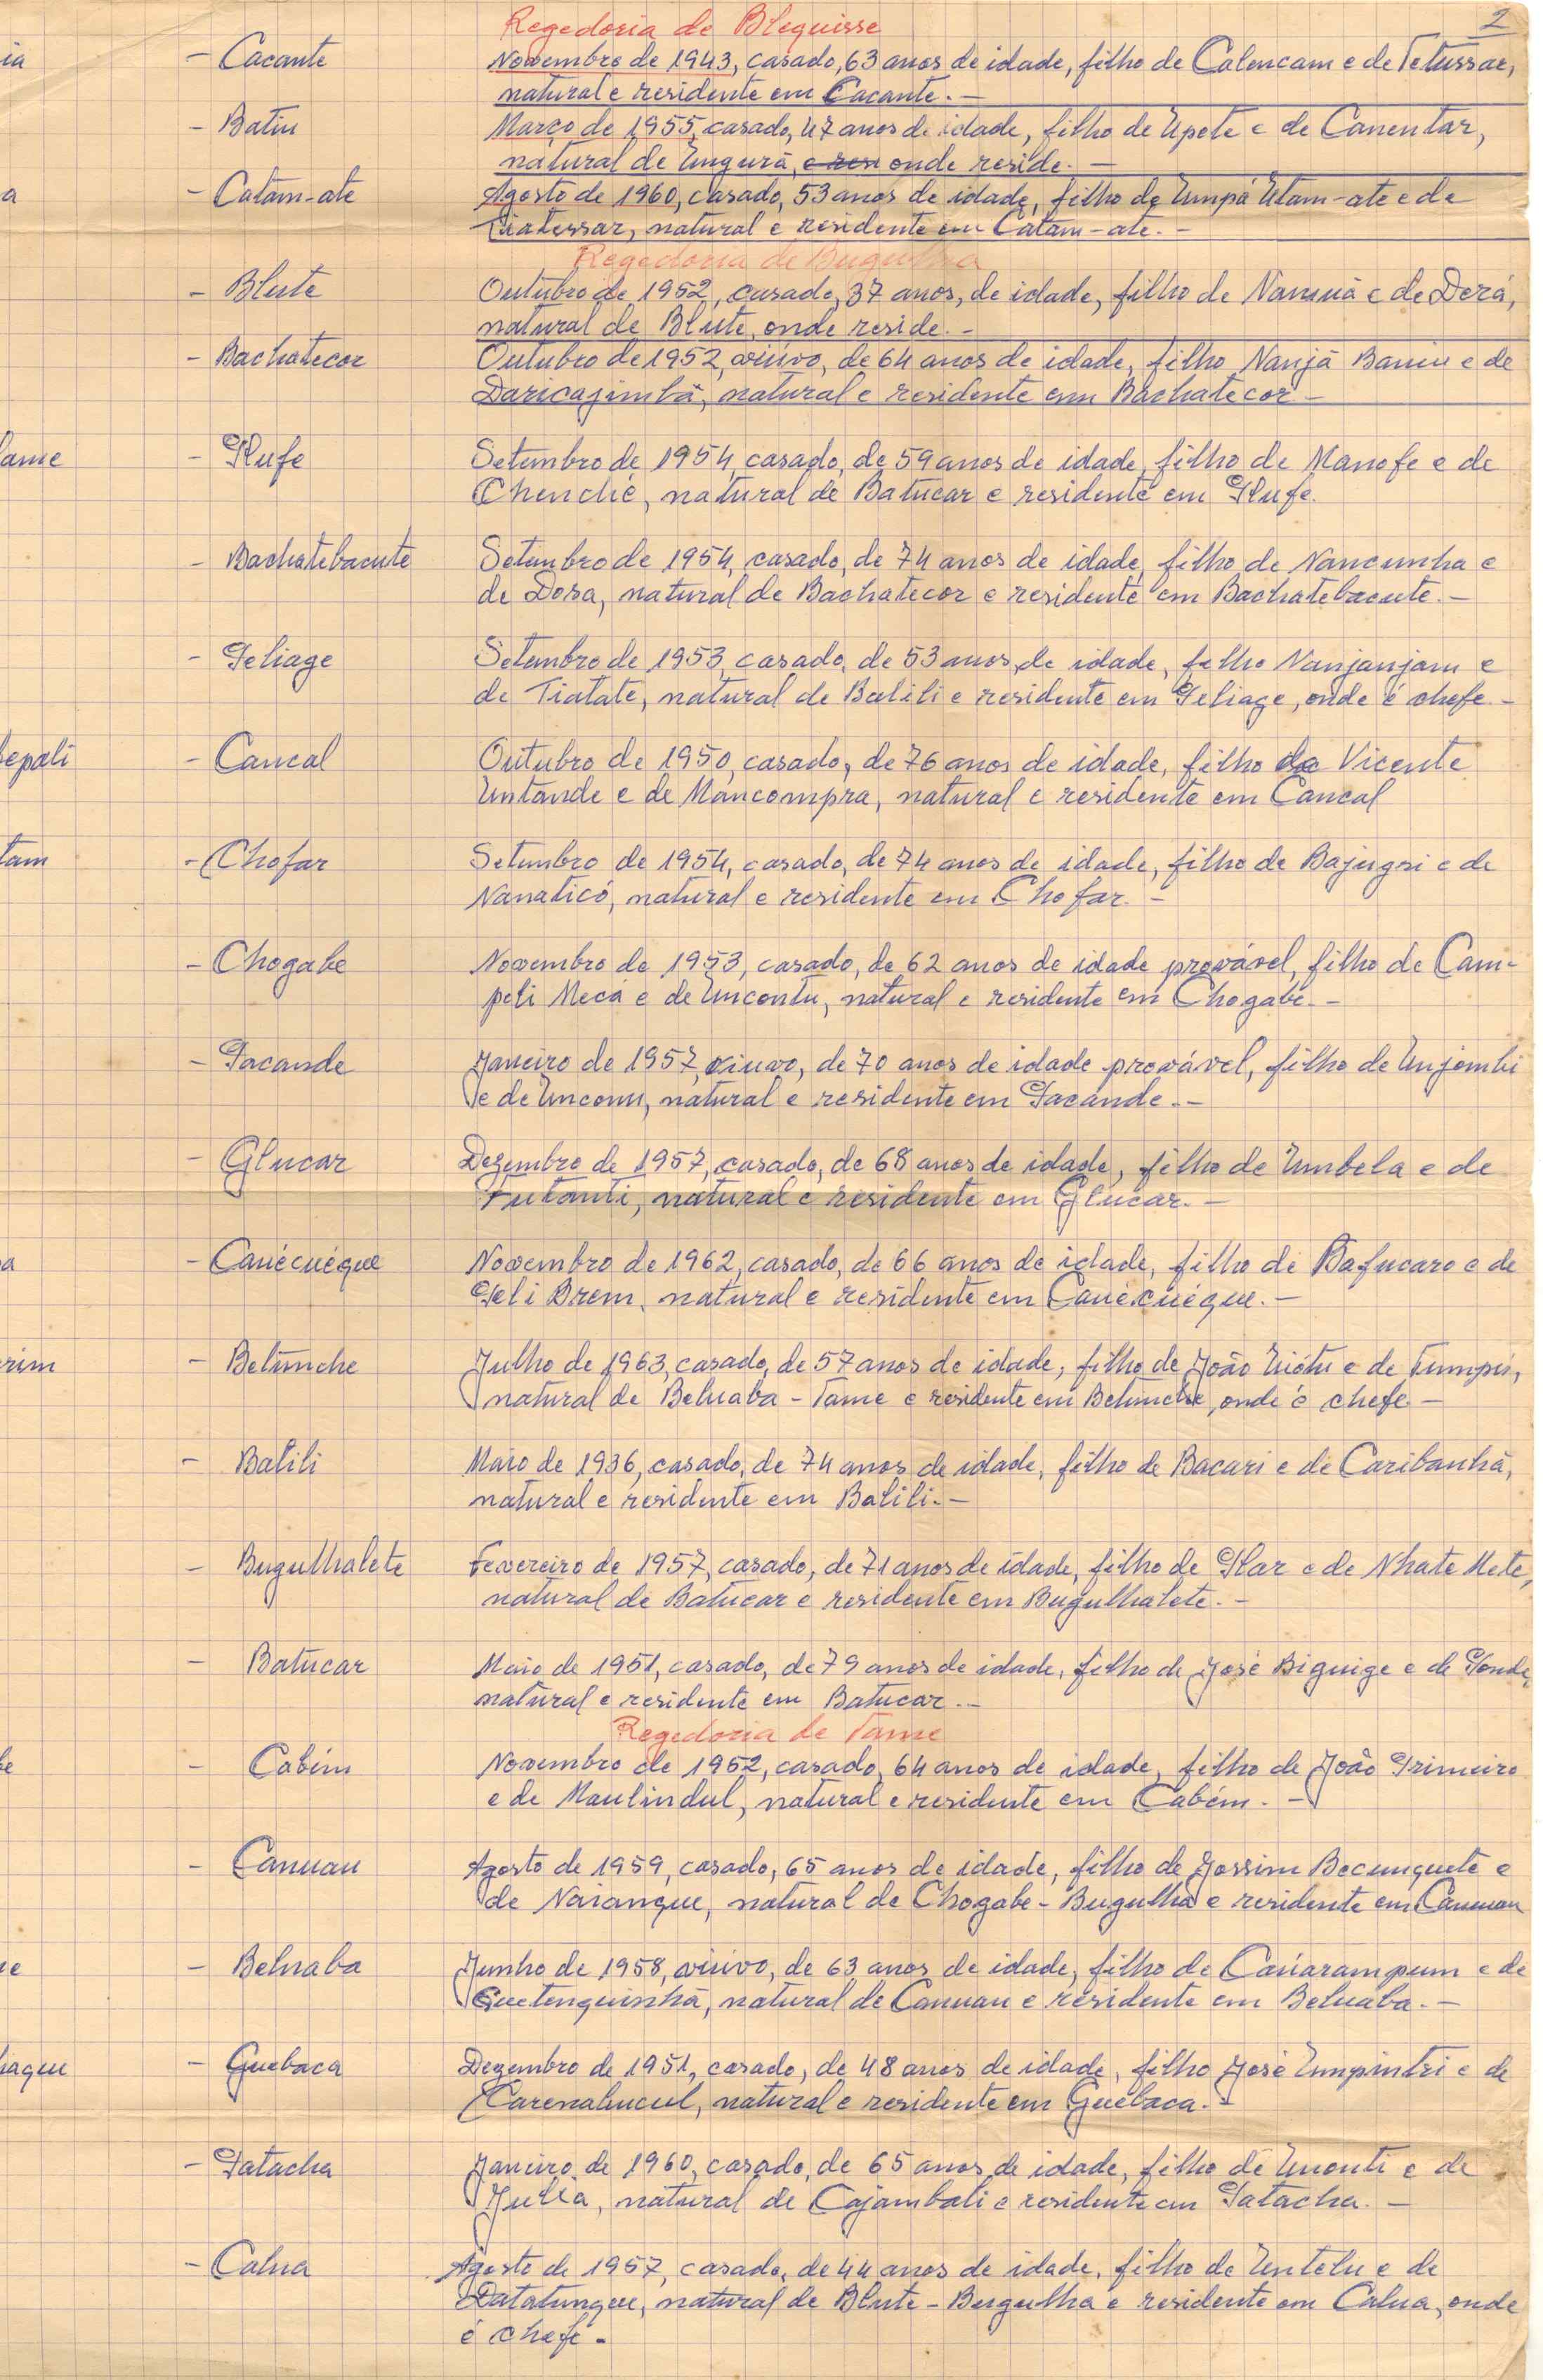 2
Regedoria de Blequisse
ia - Cacante Novembro de 1943, casado, 63 anos de idade, filho de Calencam e de Tetussar,
natural e residente em Cacante. -
- Batiu Março de 1955, casado, 47 anos de idade, filho de Upete e de Canentar,
natural de Ungurã, onde reside. -
a - Catam-ate Agosto de 1960, casado, 53 anos de idade, filho de Umpá Utam-ate e de
natural e residente em Catam-ate. -
Regedoria de Bugulha
- Blute Outubro de 1952, casado, 37 anos, de idade, filho de Namuã e de Dorá,
natural de Blute, onde reside. -
- Bachatecor Outubro de 1952, viúvo, de 64 anos de idade, filho Nanjã Baniu e de
Daricajimbã, natural e residente em Bachatecor -
ame - Plufe Setembro de 1954, casado, de 59 anos de idade, filho de Manofe e de
Chenché, natural de Batucar e residente em Plufe.
- Bachatebacute Setembro de 1954, casado, de 74 anos de idade, filho de Nancunha e
de Dosa, natural de Bachatecor e residente em Bachatebacute. -
- Peliage Setembro de 1953, casado, de 53 anos, de idade, filho Nanjanjam e
de Tiatate, natural de Balili e residente em Peliage, onde é chefe. -
epali - Cancal Outubro de 1950, casado, de 76 anos de idade, filho de Vicente
Untande e de Mancompra, natural e residente em Cancal
tam - Chofar Setembro de 1954, casado, de 74 anos de idade, filho de Bajugri e de
Nanaticó, natural e residente em Chofar. -
- Chogabe Novembro de 1953, casado, de 62 anos de idade provável, filho de Cam-
peli Meca e de Uncontu, natural e residente em Chogabe. -
- Pacande Janeiro de 1957, viuvo, de 70 anos de idade provável, filho de Unjombi
e de Unconu, natural e residente em Pacande. -
- Glucar Dezembro de 1957, casado, de 68 anos de idade, filho de Umbela e de
Futanti, natural e residente em Glucar. -
a - Cauécuéque Novembro de 1962, casado, de 66 anos de idade, filho de Bafucaro e de
Peli Brem, natural e residente em Cauécuéque. -
rim - Belunche Julho de 1963, casado, de 57 anos de idade, filho de João Uiótu e de Tumpú,
natural de Beluaba - Tame e residente em Belunche, onde é chefe -
- Balili Maio de 1936, casado, de 74 anos de idade, filho de Bacari e de Caribanhã,
natural e residente em Balili. -
- Bugulhalete Fevereiro de 1957, casado, de 71 anos de idade, filho de Plar e de Nhate Mete,
natural de Batucar e residente em Bugulhalete. -
- Batucar Maio de 1951, casado, de 79 anos de idade, filho de José Biguige e de Ponde,
natural e residente em Batucar. -
Regedoria de Tame
e - Cabém Novembro de 1952, casado, 64 anos de idade, filho de João Primeiro
e de Maulindul, natural e residente em Cabém. -
- Canuau Agosto de 1959, casado, 65 anos de idade, filho de Jossim Bocunquete e
de Naianque, natural de Chogabe - Bugulha e residente em Canuau
e - Beluaba Junho de 1958, viúvo, de 63 anos de idade, filho de Caúarampum e de
Guetenquinhã, natural de Canuau e residente em Beluaba. -
iaque - Guebaca Dezembro de 1951, casado, de 48 anos de idade, filho José Umpintri e de
Carenalucul, natural e residente em Guebaca. -
- Patacha Janeiro de 1960, casado, de 65 anos de idade, filho de Unonti e de
Julia, natural de Cajambali e residente em Patacha. -
- Calua Agosto de 1957, casado, de 44 anos de idade, filho de Untelu e de
Datatunque, natural de Blute - Bugulha e residente em Calua, onde
é chefe -